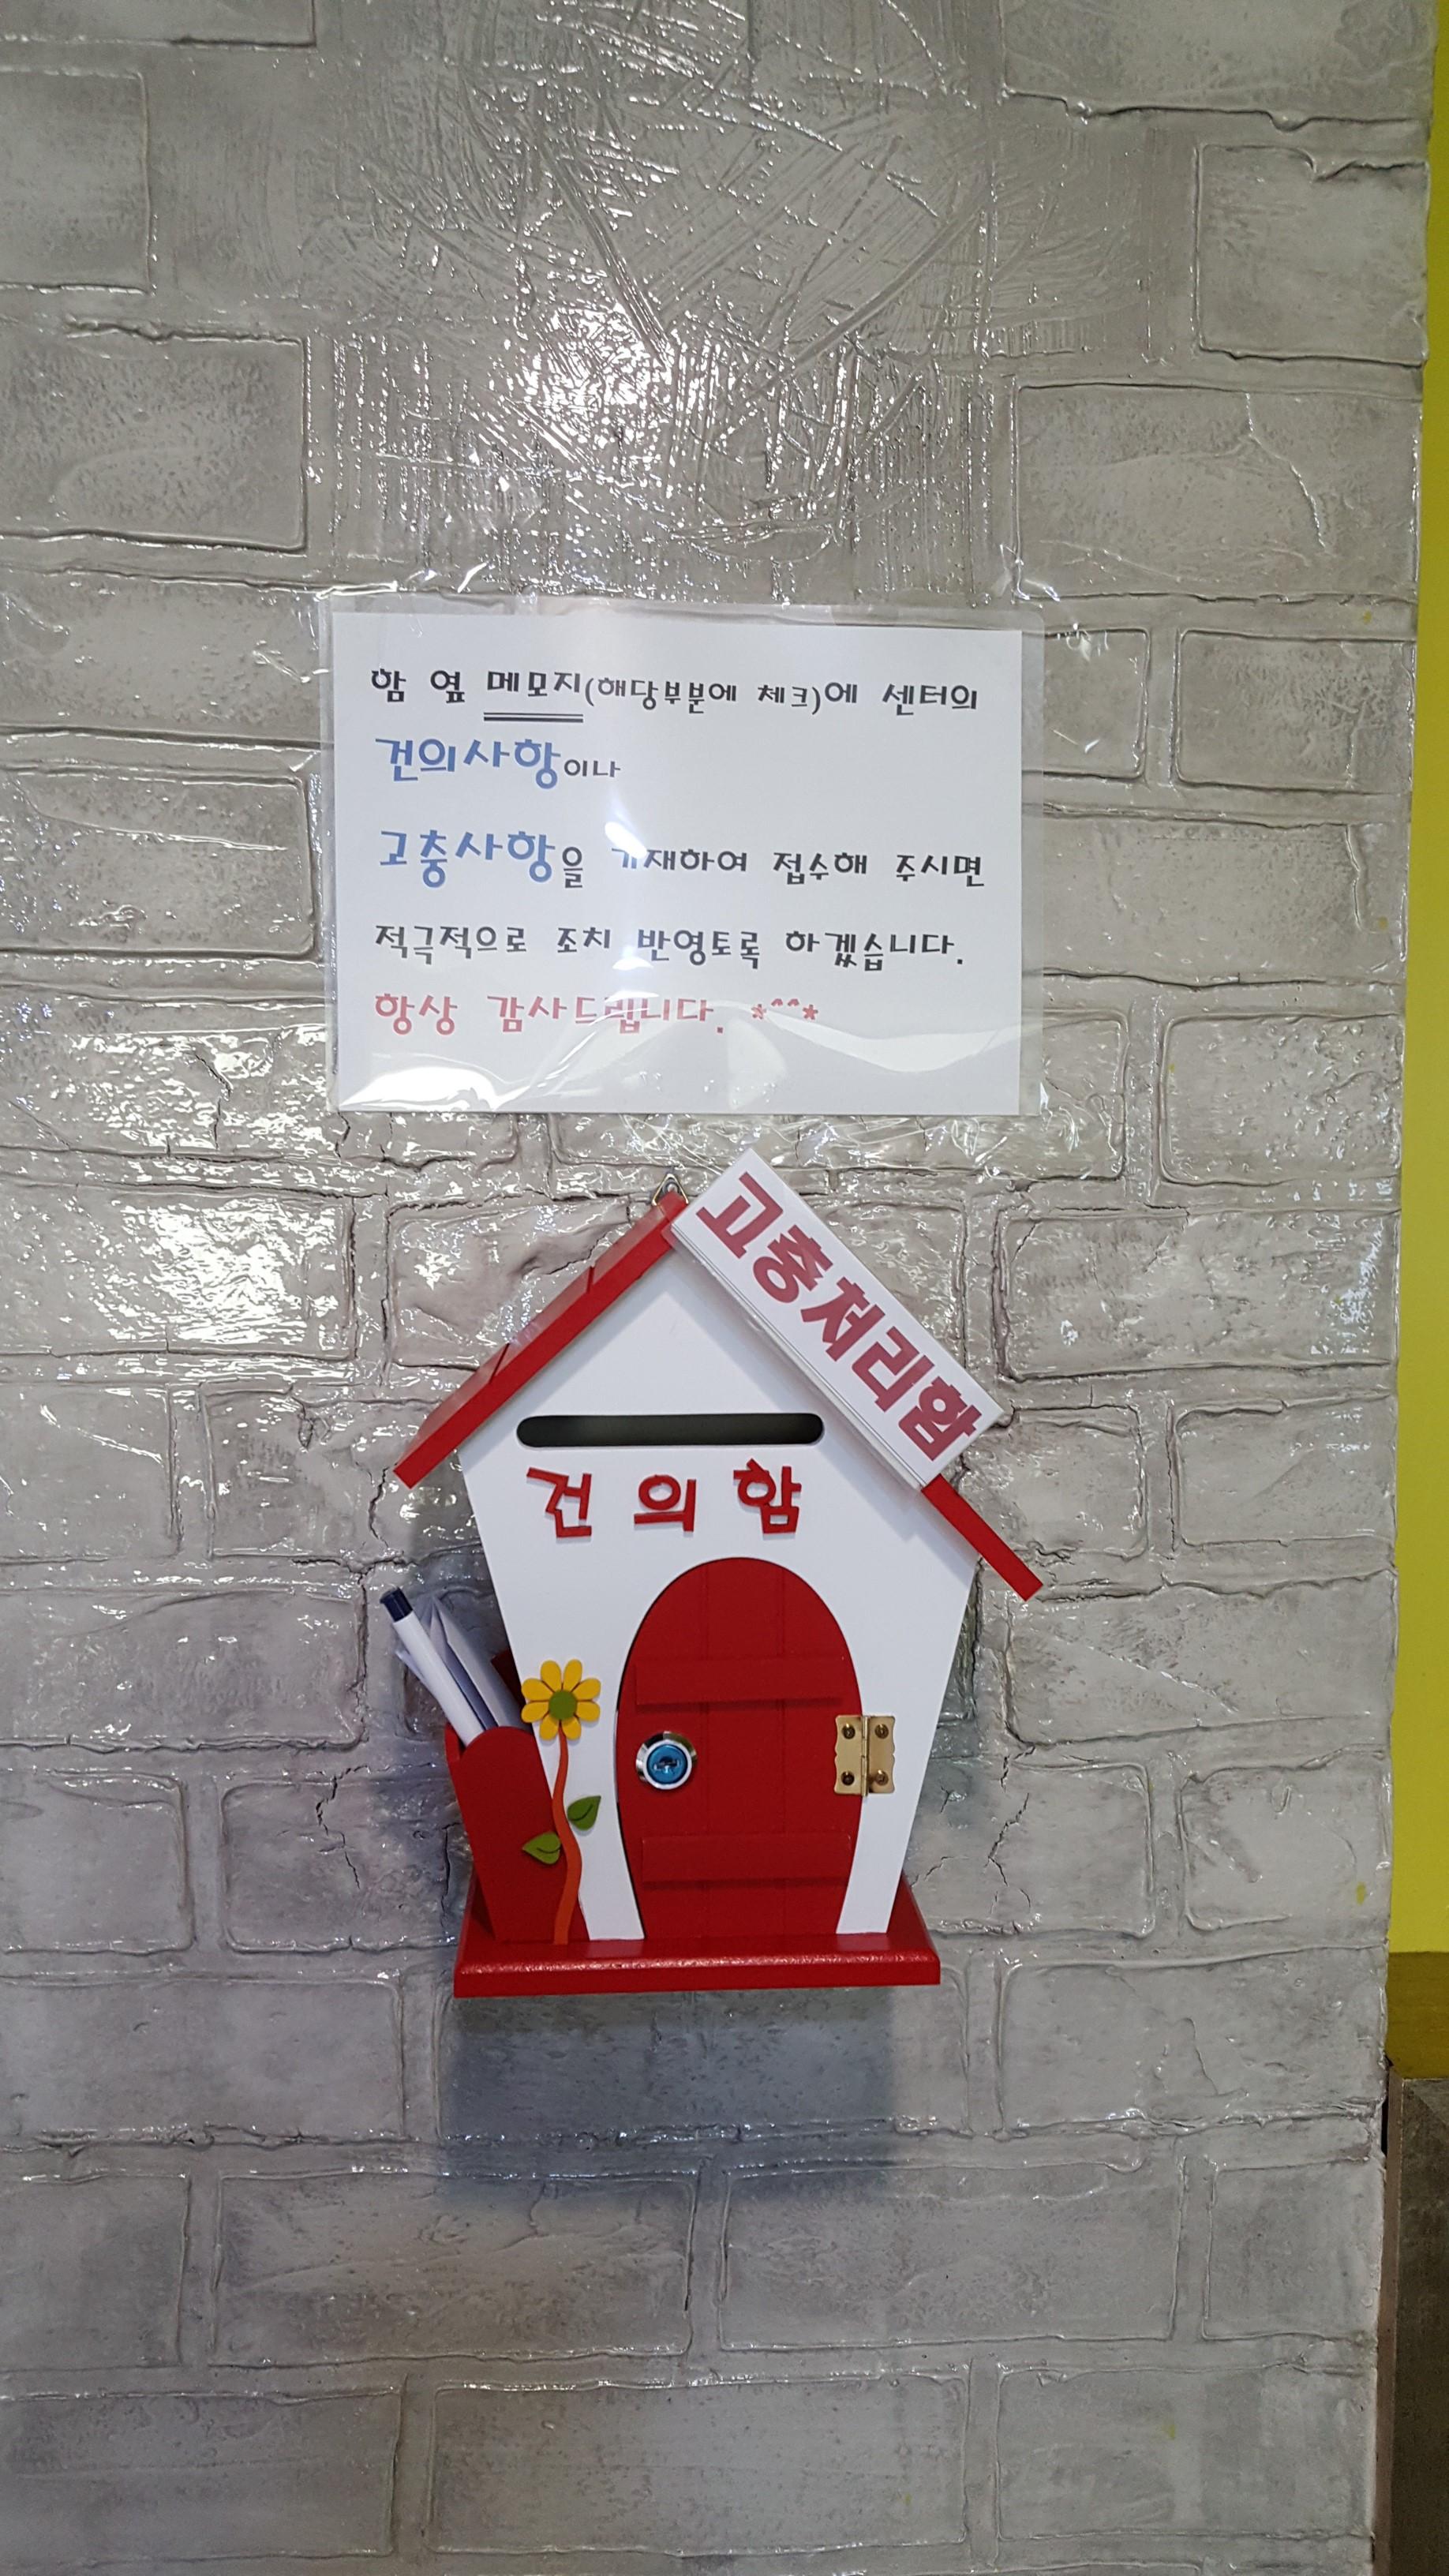 함 옆 메모지(해당부분에 체크)에 센터의
건의사항이나
고충사항을 기재하여 접수해 주시면
적극적으로 조치 반영토록 하겠습니다.
항상 감사드립니다. *^^*
고충처리함
건의함